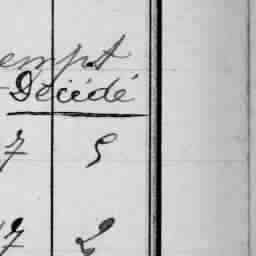 empt
Décédé
7 5
7 2